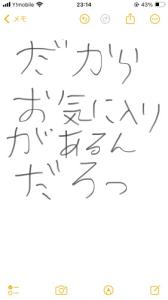 Y!mobile 23:14 43%
メモ
だから
お気に入り
があるん
だろっ